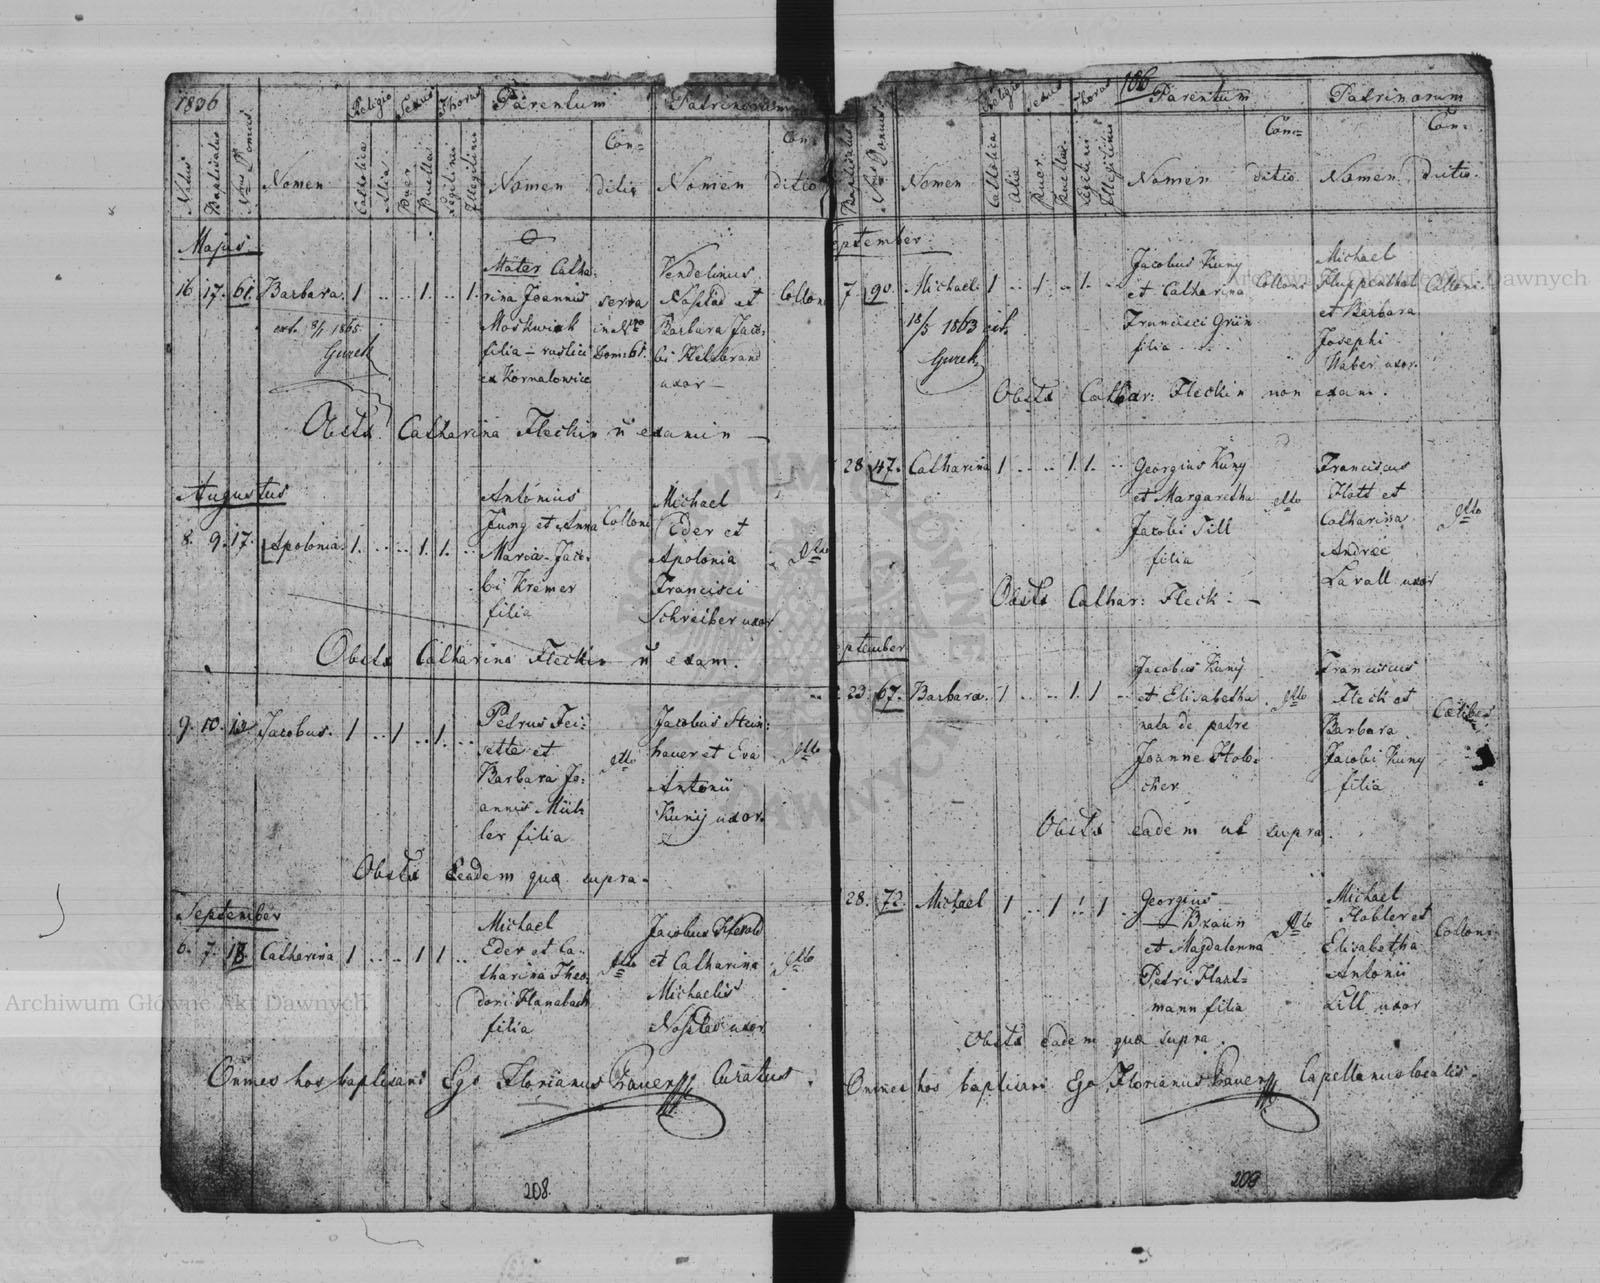 1836
Religio Sexus Thorus Parentum Patrinorum
Natus
Baptisatus
Nrus Domus
Nomen
Catholica
Alia
Puer
Puella
Legitimi
Illegitimi
Nomen
Con=
ditio
Nomen
Con=
ditio
Majus
16 17. 61. Barbara. 1 .. .. 1. .. 1.
ext. 8/1 1865
Gurek
Mater Catha:
rina Joannis
Moskwiak
filia – rustici
ex Kornalowice
serva
in Nro
Dom: 61.
Vendelinus
et
Barbara Jaco:
bi
uxor –
Coloni
Obstx Catharina Fleckin n examin –
Augustus
8. 9. 17. Apolonia. 1. .. .. 1. 1. ..
Antonius
Jung et Anna
Maria Jaco:
bi Kremer
filia
Coloni
Michael
Eder et
Apolonia
Francisci
Schreiber uxor
dtto
Obstx Catharina Fleckin n exam.
9. 10. 12 Jacobus. 1 .. 1 .. 1. ..
Petrus Fei:
sette et
Barbara Jo:
annis Mül:
ler filia
dtto
Jacobus Stein:
hauer et Eva
Antonii
Kunÿ uxor.
dtto
Obstx Eadem quæ supra.
September
6. 7. 18. Catharina 1 .. .. 1 1 ..
Michael
Eder et Ca:
tharina Theo:
dori Hanabach
filia
dtto
Jacobus Herold
et Catharina
Michaelis
uxor
dtto
Omnes hos baptisavi Ego Florianus Prauer Curatus.
208.
106
Religio Sexus Thorus Parentum Patrinorum
Baptisatus
Nrus Domus
Nomen
Catholica
Alia
Puer
Puella
Legitimi
Illegitimi
Nomen
Con=
ditio
Nomen
Con=
ditio.
September
7 90. Michael. 1 .. 1 .. 1. ..
18/5 1863 ext.
Gurek
Jacobus Kunÿ
et Catharina
Francisci Grün
filia ..
Coloni
Michael
Huppenthal
et Barbara
Josephi
Waber uxor.
Coloni
Obstx Cathar: Fleckin non exam.
28 47. Catharina 1 .. .. 1. 1. ..
Georgius Kunÿ
et Margaretha
Jacobi Till
filia
dtto
Franciscus
Flatt et
Catharina
Andreæ
Lavall uxor
dtto
Obstx Cathar: Fleck. –
September
23. 67. Barbara. 1 .. .. 1. 1 ..
Jacobus Kunÿ
et Elisabetha
nata de patre
Joanne Holo:
cher
dtto
Franciscus
Fleck et
Barbara
Jacobi Kunÿ
filia
Cælibes
Obstx eadem ut supra.
28. 72. Michael 1 .. 1 .. 1 ..
Georgius
Braun
et Magdalenna
Petri Hart=
mann filia
dtto
Michael
Habler et
Elisabetha
Antonii
Lill uxor
Coloni
Obstx eadem quæ supra.
Omnes hos baptisavi Ego Florianus Prauer Capellanus localis.
209
Archiwum Główne Akt Dawnych
Archiwum Główne Akt Dawnych
ARCHIWUM GŁÓWNE AKT DAWNYCH